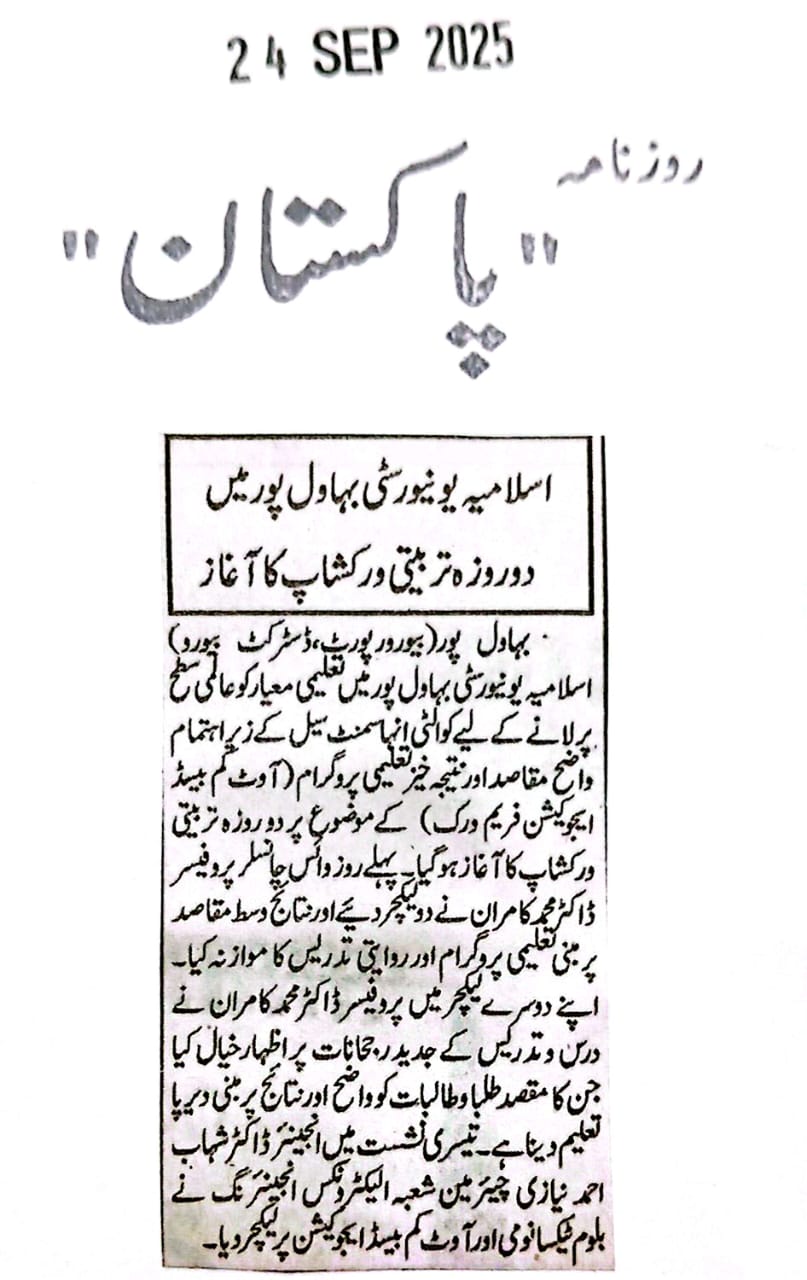 24 SEP 2025
روزنامہ
"پاکستان"
اسلامیہ یونیورسٹی بہاول پور میں
دو روزہ تربیتی ورکشاپ کا آغاز
بہاول پور (بیورو رپورٹ، ڈسٹرکٹ بیورو)
اسلامیہ یونیورسٹی بہاول پور میں تعلیمی معیار کو عالمی سطح
پر لانے کے لیے کوالٹی انہاسمنٹ سیل کے زیر اہتمام
واضح مقاصد اور نتیجہ خیز تعلیمی پروگرام (آوٹ کم بیسڈ
ایجوکیشن فریم ورک) کے موضوع پر دو روزہ تربیتی
ورکشاپ کا آغاز ہو گیا۔ پہلے روز وائس چانسلر پروفیسر
ڈاکٹر محمد کامران نے دو لیکچر دیئے اور نتائج وسط مقاصد
پر مبنی تعلیمی پروگرام اور روایتی تدریس کا موازنہ کیا۔
اپنے دوسرے لیکچر میں پروفیسر ڈاکٹر محمد کامران نے
درس و تدریس کے جدید رجحانات پر اظہار خیال کیا
جن کا مقصد طلبا و طالبات کو واضح اور نتائج پر مبنی دیرپا
تعلیم دینا ہے۔ تیسری نشست میں انجینئر ڈاکٹر شہاب
احمد نیازی چیئرمین شعبہ الیکٹرونکس انجینئرنگ نے
بلوم ٹیکسانومی اور آوٹ کم بیسڈ ایجوکیشن پر لیکچر دیا۔